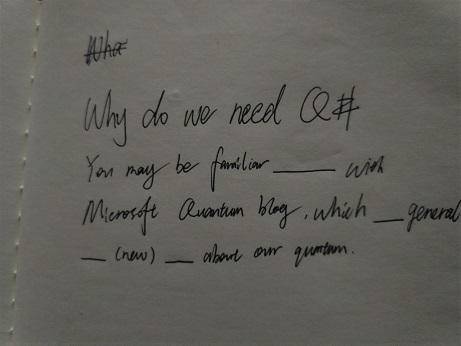 Wha
Why do we need Q#
You may be familiar ______ with
Microsoft Quantum blog, which __ general
__ (new) __ about our quantum.